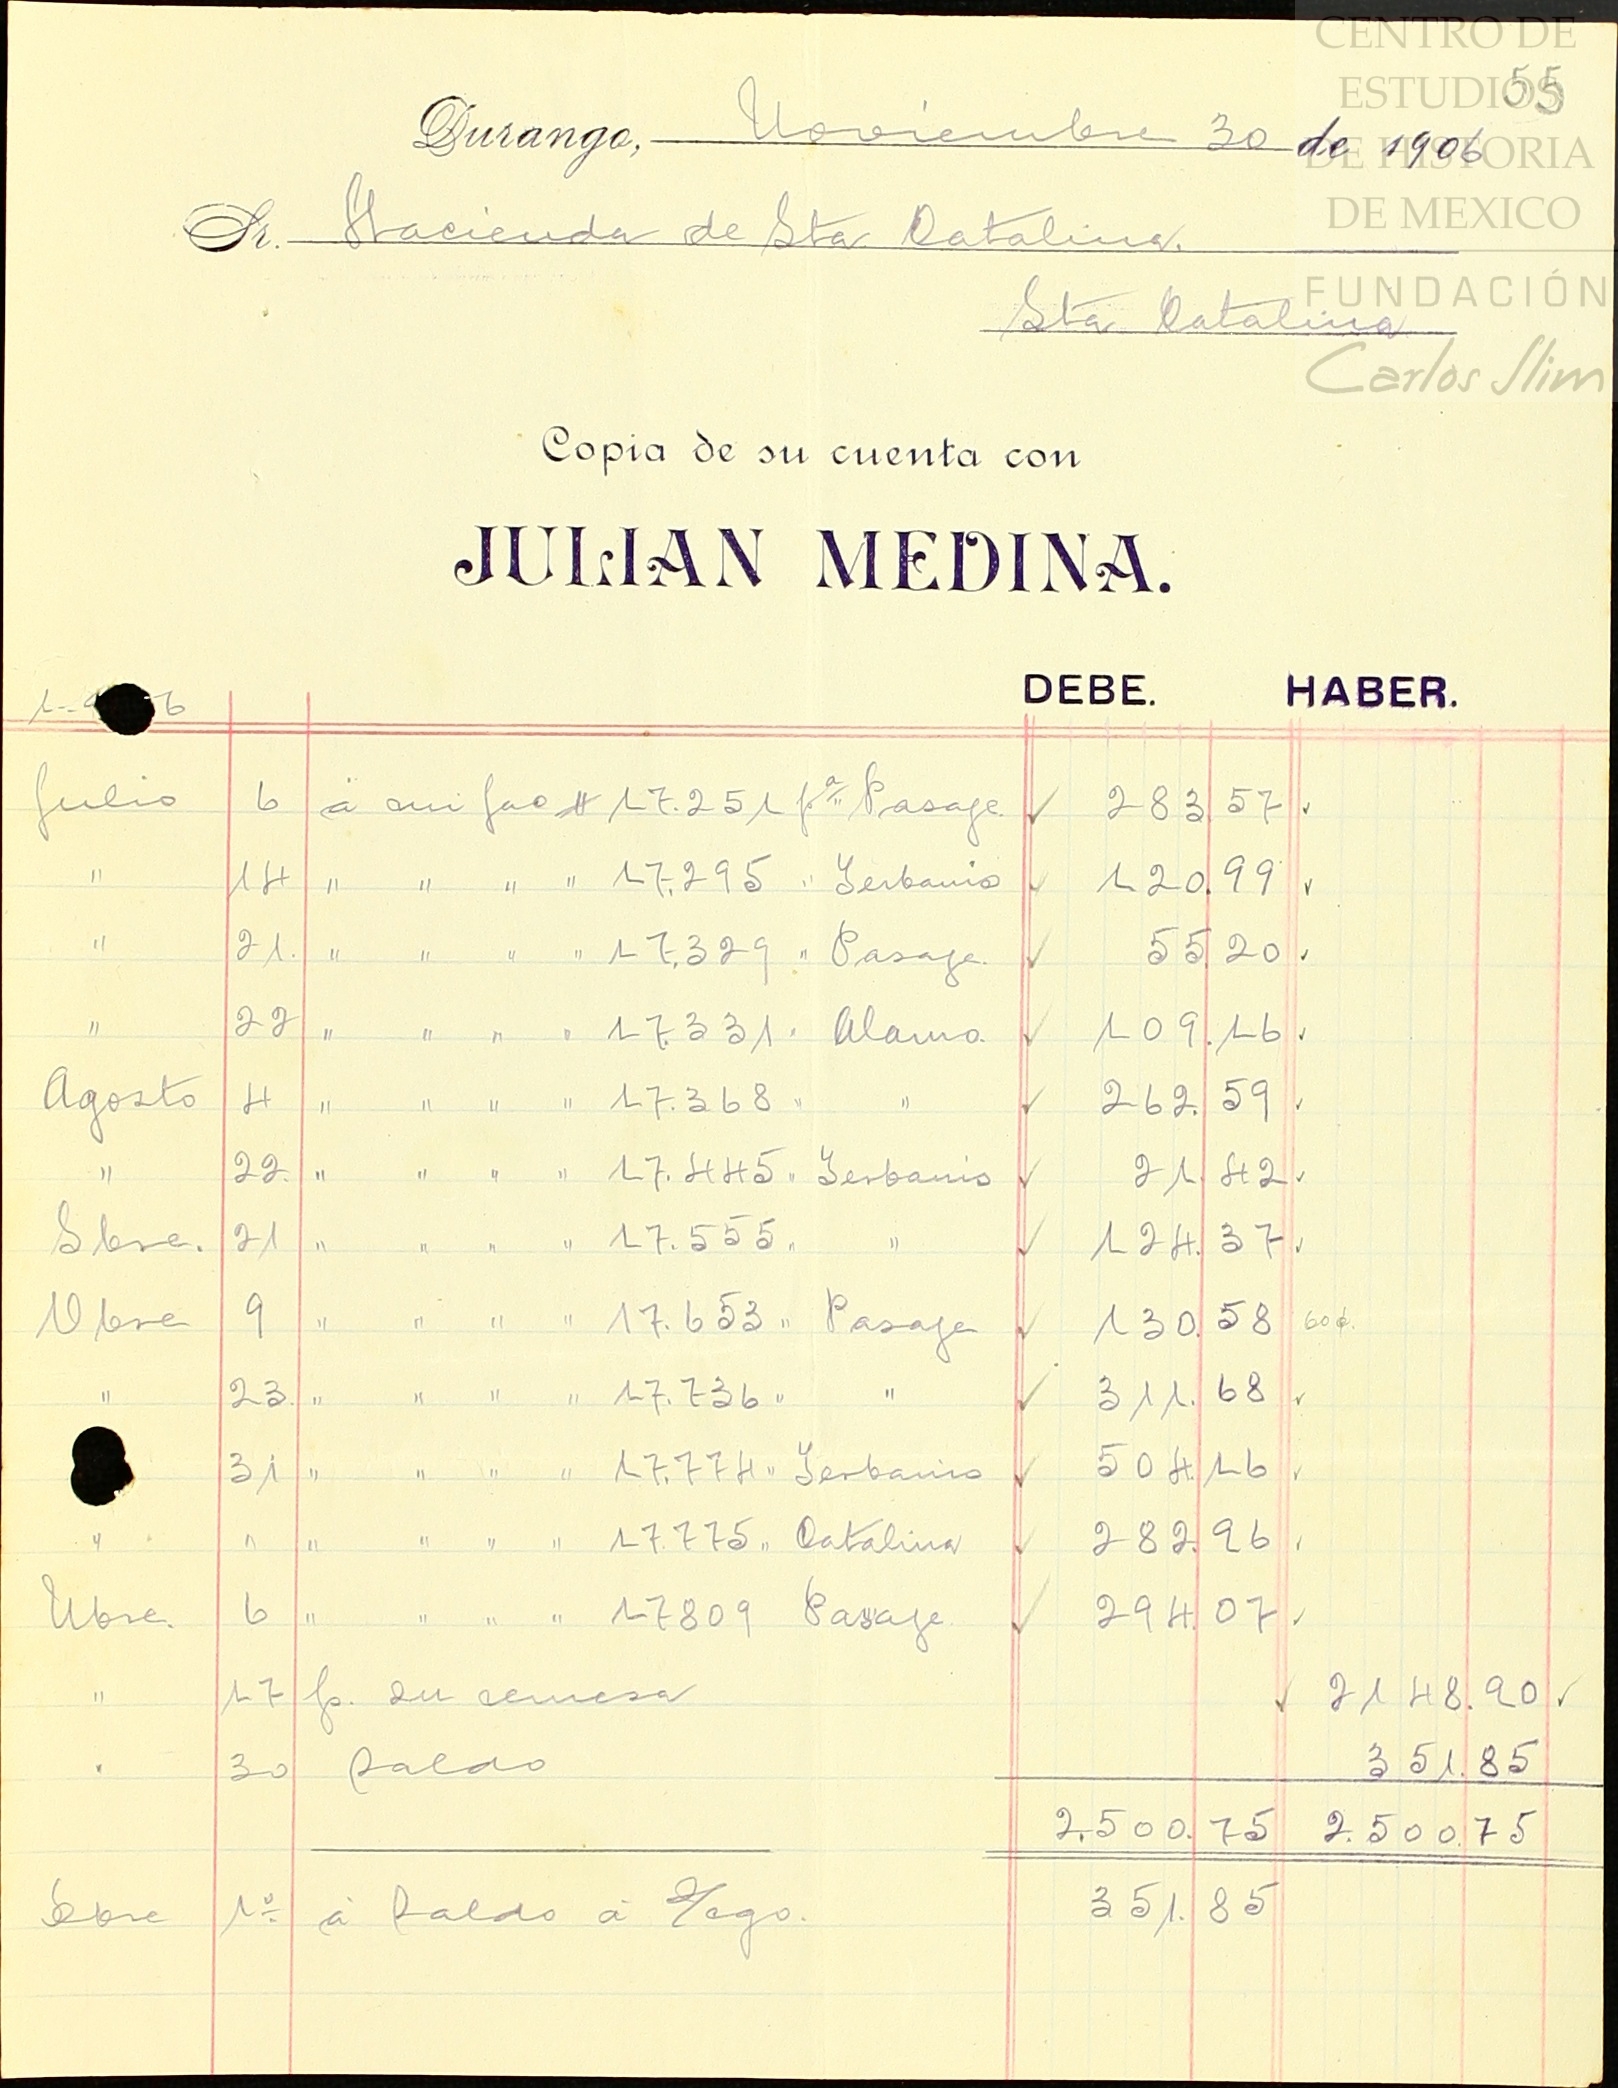 CENTRO DE
ESTUDIOS
DE HISTORIA
DE MEXICO
FUNDACIÓN
Carlos Slim
55
Durango, Noviembre 30 de 1906
Sr. Hacienda de Sta Catalina.
Sta Catalina
Copia de su cuenta con
JULIAN MEDINA.
DEBE. HABER.
Julio 6 à mi fac # 17.251 pª Pasaje. 283 57
" 14 " " " " 17,295 " Yerbanis 120.99
" 21. " " " " 17,329 " Pasaje. 55 20
" 22 " " " " 17.331 " Alamo. 109.16
Agosto 4 " " " " 17.368 " " 262.59
" 22. " " " " 17.445 " Yerbanis 21 42
Sbre. 21 " " " " 17.555 " " 124.37
Obre 9 " " " " 17.653 " Pasaje 130.58 60¢.
" 23. " " " " 17.736 " " 311.68
31 " " " " 17.774 " Yerbanis 504.16
" " " " " " 17.775 " Catalina 282.96
Nbre. 6 " " " " 17809 Pasaje 294.07
" 17 p. su remesa 2148.90
" 30 Saldo 351.85
2.500.75 2.500.75
Dbre 1º à Saldo à 351.85